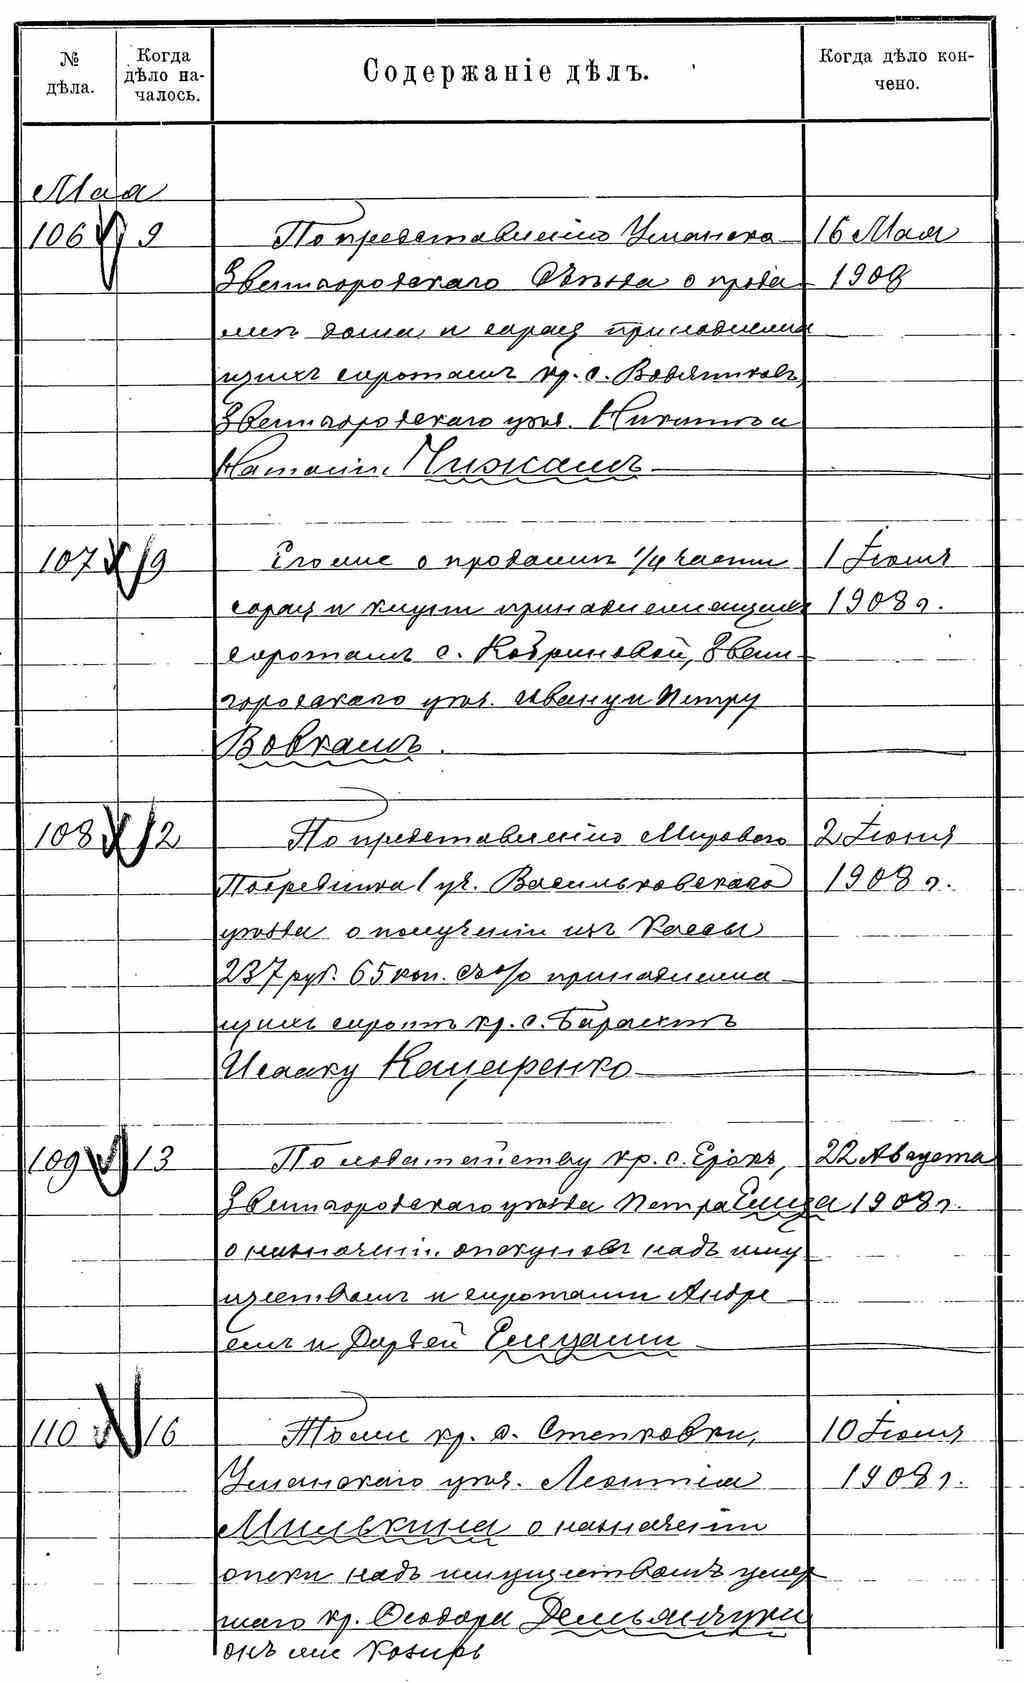 № дѣла.
Когда дѣло началось.
Содержаніе дѣлъ.
Когда дѣло кончено.
Мая
106 9 По представленію Уманско 16 Мая
Звенигородскаго Съѣзда о прода 1908
жѣ дома и сарая принадлежа
щихъ сиротамъ кр. с. Водяниковъ,
Звенигородскаго уѣз. Никитѣ и
Наталіи Чижамъ
107 9 Его же о продажѣ 1/4 части 1 Іюня
сарая и клуни принадлежащихъ 1908 г.
сиротамъ с. Кобриновой, Звени-
городскаго уѣз. Ивану и Петру
Вовкамъ.
108 12 По представленію Мирового 2 Іюня
Посредника 1 уч. Васильковскаго 1908 г.
уѣзда о полученіи изъ Кассы
237 руб. 65 коп. съ % принадлежа
щихъ сиротѣ кр. с. Барахтъ
Исааку Кацаренко
109 13 По ходатайству кр. с. Ерокъ, 22 Августа
Звенигородскаго уѣзда Петра Емца 1908 г.
о назначеніи опекуновъ надъ иму
ществомъ и сиротами Андре
емъ и Дарьей Емцами
110 16 То же кр. с. Степковки, 10 Іюня
Уманскаго уѣз. Леонтія 1908 г.
Милькина о назначеніи
опеки надъ имуществомъ умер
шаго кр. Ѳеодора Демьянчука
онъ же Козырь